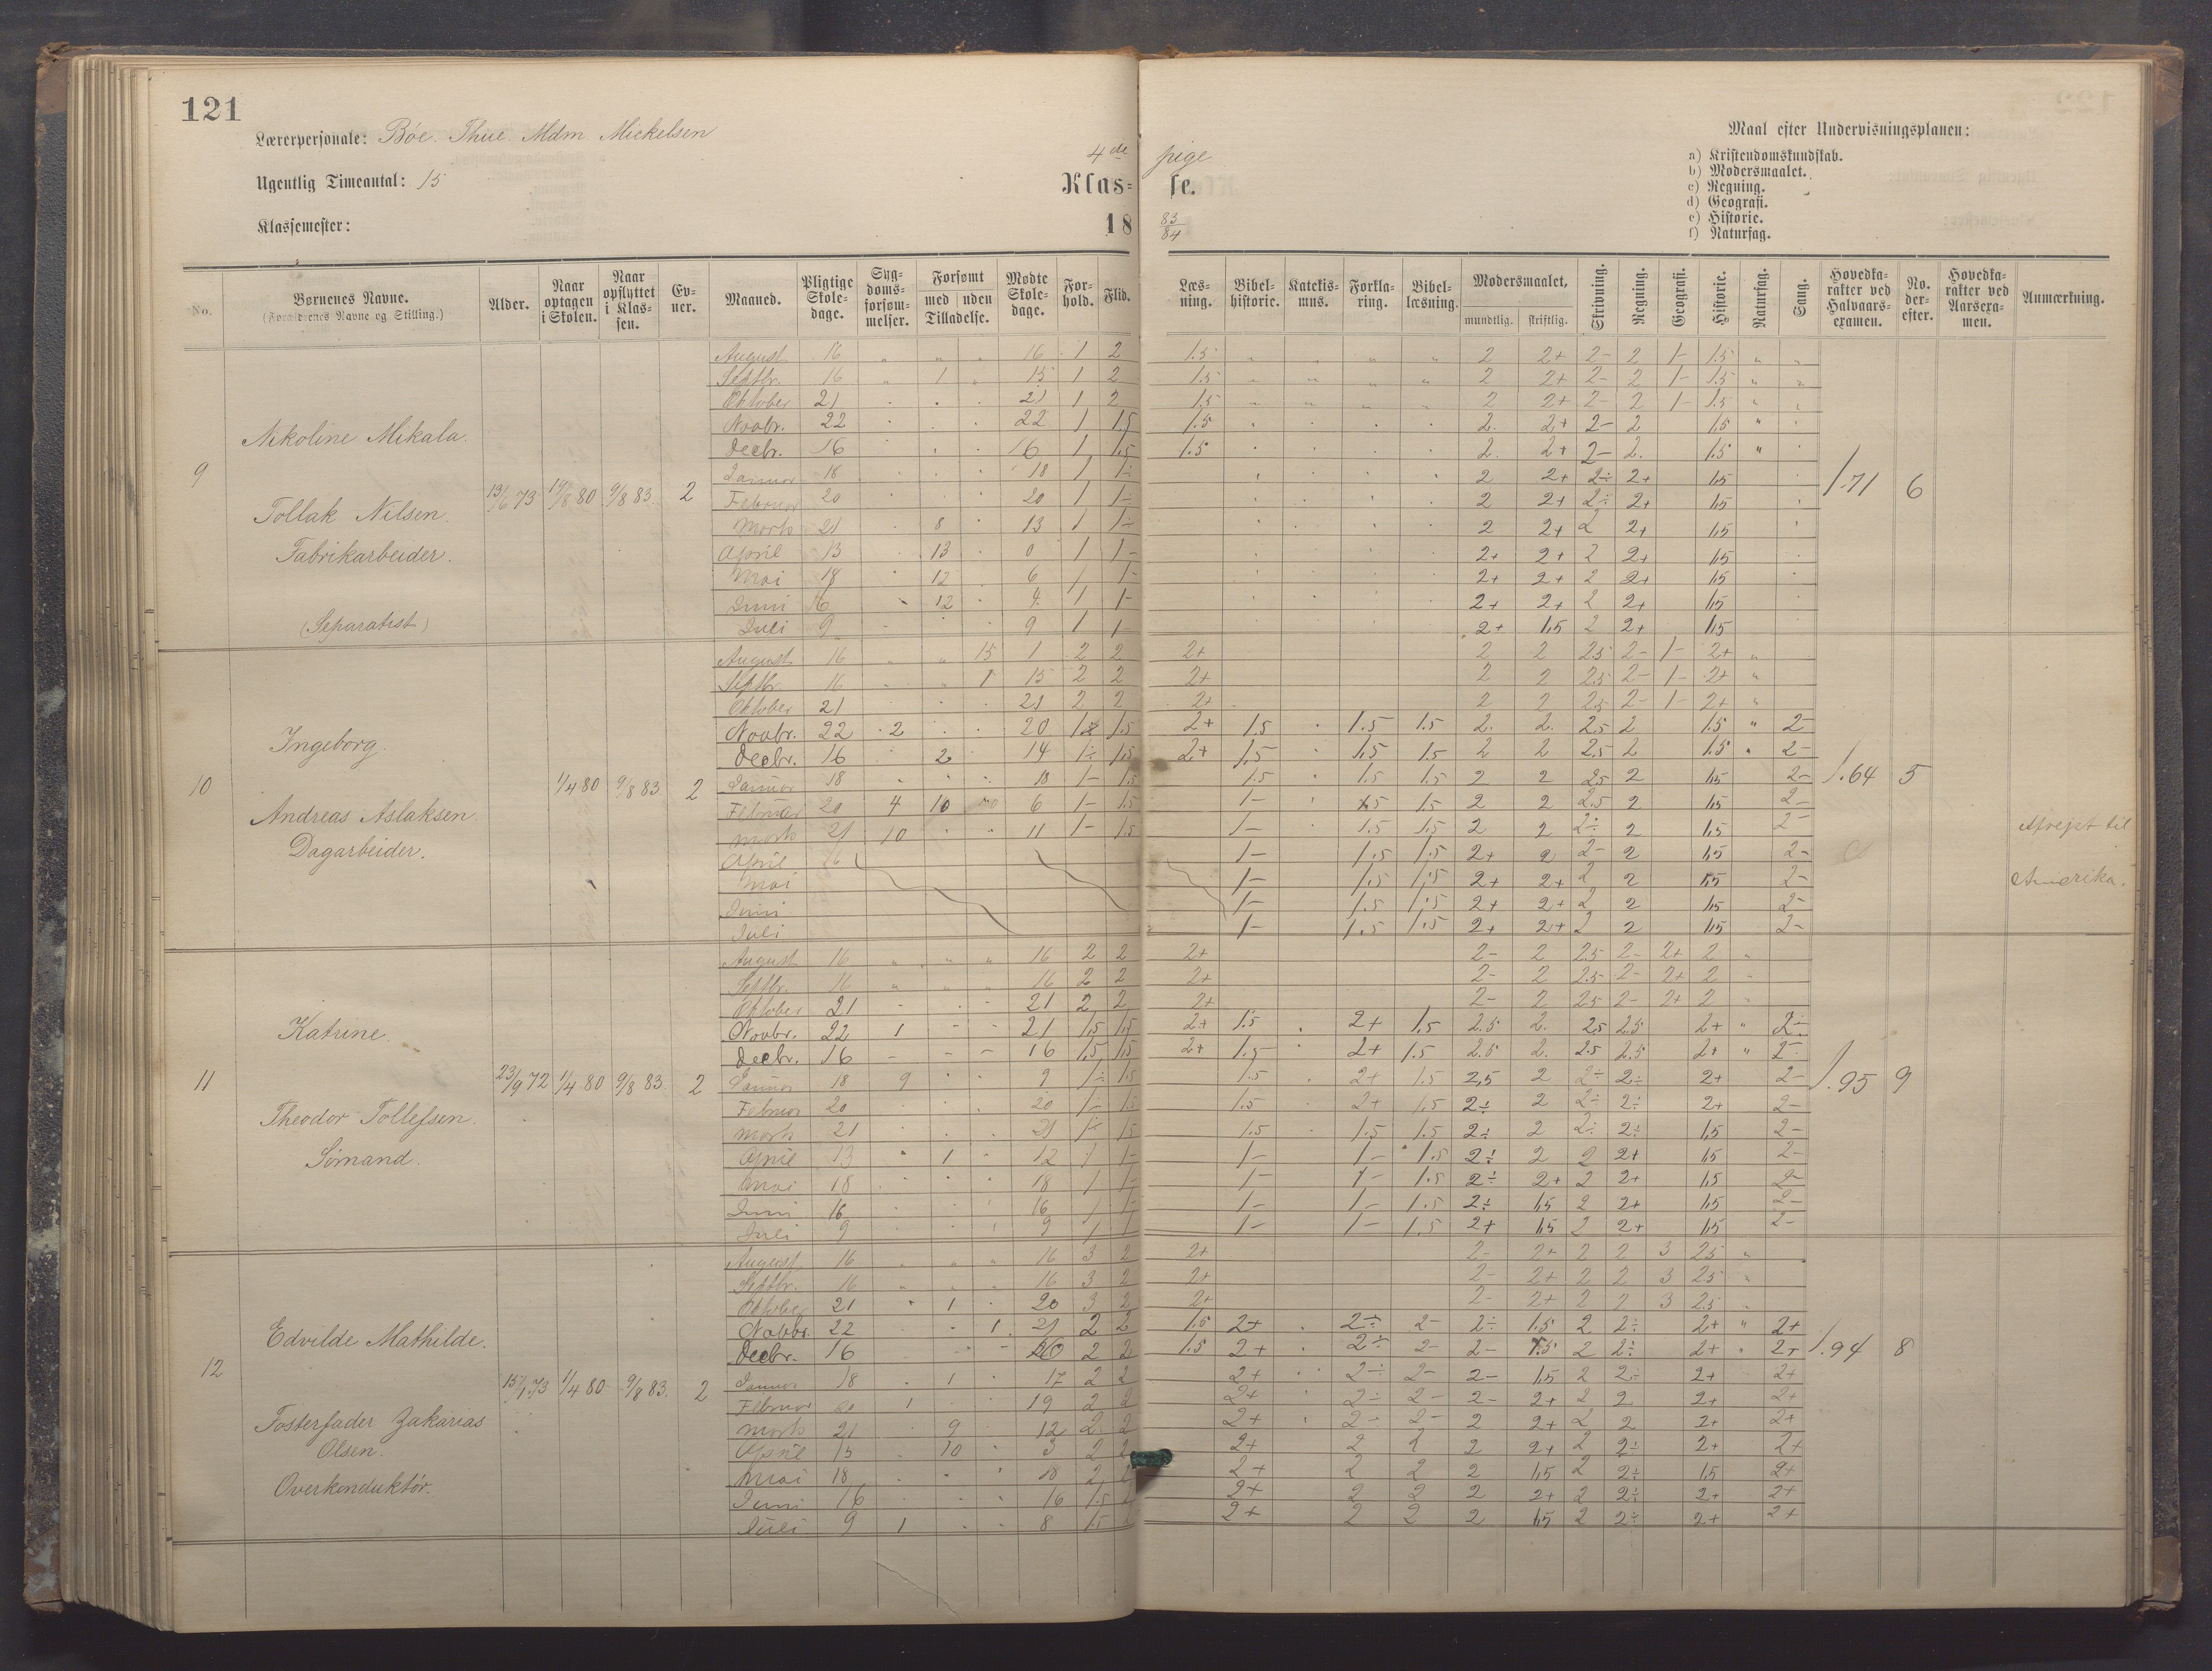 121
Lærerpersonale: Bóe. Thue. Mdm Mickelsen
Ugentlig Timeantal: 15
Klassemester:
4de pige
Klas- se.
18 83/84
Maal efter Undervisningsplanen:
a) Kristendomskundskab.
b) Modersmaalet.
c) Regning.
d) Geografi.
e) Historie.
f) Naturfag.
No. Børnenes Navne. (Forældrenes Navne og Stilling.) Alder. Naar optagen i Skolen. Naar opflyttet i Klassen. Evner. Maaned. Pligtige Skoledage. Sygdomsforsømmelser. Forsømt med uden Tilladelse. Mødte Skoledage. Forhold. Flid. Læsning. Bibelhistorie. Katekismus. Forklaring. Bibellæsning. Modersmaalet. mundtlig. skriftlig. Skrivning. Regning. Geografi. Historie. Naturfag. Sang. Hovedkarakter ved Halvaarsexamen. No. derefter. Hovedkarakter ved Aarsexamen. Anmærkning.
9 Nikoline Mikala. Tollak Nilsen. Fabrikarbeider. (Separatist) 13/6 73 19/8 80 9/8 83. 2 1.71 6
August 16 " " " 16 1 2 1.5 " " " " 2 2+ 2- 2 1- 1.5 " "
Septbr. 16 " 1 " 15 1 2 1.5 " " " " 2 2+ 2- 2 1- 1.5 " "
Oktober 21 . . . 21 1 2 1.5 " " " " 2 2+ 2- 2 1- 1.5 " "
Novbr. 22 . . . 22 1 1.5 1.5 . . . . 2. 2+ 2- 2 1.5 " .
Decbr. 16 . . . 16 1 1.5 1.5 . . . . 2. 2+ 2- 2. 1.5 " .
Januar 18 . . . 18 1 1÷ 2 2+ 2÷ 2+ 1.5
Februar 20 . . . 20 1 1÷ 2 2+ 2÷ 2+ 1.5
Marts 21 . 8 . 13 1 1÷ 2 2+ 2 2+ 1.5
April 13 . 13 . 0 1 1- 2+ 2+ 2 2+ 1.5
Mai 18 . 12 . 6 1 1- 2+ 2+ 2 2+ 1.5
Juni 16 . 12 . 4. 1 1- 2+ 2+ 2 2+ 1.5
Juli 9 . . . 9 1 1- 2+ 1.5 2 2+ 1.5
10 Ingeborg. Andreas Aslaksen. Dagarbeider. 1/4 80 9/8 83 2 1.64 5 Afrejst til Amerika.
August 16 " " 15 1 2 2 2+ 2 2 2.5 2- 1- 2+ "
Septbr. 16 " " 1 15 2 2 2+ 2 2 2.5 2- 1- 2+ "
Oktober 21 . . . 21 2 2 2+ 2 2 2.5 2- 1- 2+ "
Novbr. 22 2 . . 20 1.5 2+ 1.5 . 1.5 1.5 2. 2. 2.5 2 1.5 " 2-
Decbr. 16 . 2 . 14 1÷ 1.5 2+ 1.5 . 1.5 1.5 2 2 2.5 2 1.5 " 2-
Januar 18 . . . 18 1- 1.5 1.5 . 1.5 1.5 2 2 2.5 2 1.5 2-
Februar 20 4 10 6 1- 1.5 1- . 1.5 1.5 2 2 2.5 2 1.5 2-
Marts 21 10 . . 11 1- 1.5 1- 1.5 1.5 2 2 2÷ 2 1.5 2-
April 1- 1.5 1.5 2+ 2 2- 2 1.5 2-
Mai 1- 1.5 1.5 2+ 2+ 2 2 1.5 2-
Juni 1- 1.5 1.5 2+ 2+ 2 2 1.5 2-
Juli 1- 1.5 1.5 2+ 2+ 2 2 1.5 2-
11 Katrine. Theodor Tollefsen. Sómand. 23/9 72 1/4 80 9/8 83. 2 1.95 9
August 16 " " " 16 2 2 2+ 2- 2 2.5 2- 2+ 2 "
Septbr. 16 " " " 16 2 2 2+ 2- 2 2.5 2- 2+ 2 "
Oktober 21 - . - 21 2 2 2+ 2- 2 2.5 2- 2+ 2 "
Novbr. 22 1 - - 21 1.5 1.5 2+ 1.5 . 2+ 1.5 2.5 2. 2.5 2.5 2+ " 2÷
Decbr. 16 - - - 16 1.5 1.5 2+ 1.5 . 2+ 1.5 2.5 2. 2.5 2.5 2+ " 2-
Januar 18 9 . . 9 1÷ 1.5 1.5 . 2+ 1.5 2.5 2 2÷ 2÷ 2+ 2-
Februar 20 . . . 20 1÷ 1.5 1.5 . 2+ 1.5 2÷ 2 2÷ 2÷ 2+ 2-
Marts 21 . . . 21 1÷ 1.5 1.5 . 1.5 1.5 2÷ 2 2÷ 2÷ 1.5 2-
April 13 . 1 . 12 1 1- 1- 1- 1.5 2÷ 2 2 2+ 1.5 2-
Mai 18 . . . 18 1 1- 1- 1- 1.5 2÷ 2+ 2 2+ 1.5 2-
Juni 16 . . . 16 1 1- 1- 1- 1.5 2÷ 1.5 2 2+ 1.5 2-
Juli 9 . . . 9 1 1 1- 1- 1.5 2+ 1.5 2 2+ 1.5 2-
12 Edvilde Mathilde. Fosterfader Zakarias Olsen. Overkonduktór. 15/1 73 1/4 80 9/8 83. 2 1.94 8
August 16 " " " 16 3 2 2+ 2- 2+ 2 2 3 2.5 "
Septbr. 16 " " " 16 3 2 2+ 2- 2+ 2 2 3 2.5 "
Oktober 21 . 1 . 20 3 2 2+ 2- 2+ 2 2 3 2.5 "
Novbr. 22 . . 1 21 2 2 1.5 2+ . 2÷ 2- 2÷ 1.5 2 2÷ 2+ " 2+
Decbr. 16 . . - 2 2 1.5 2+ . 2÷ 2- 2- 1.5 2 2÷ 2+ " 2+
Januar 18 . 1 . 17 2 2 2+ . 2÷ 2- 2- 1.5 2 2÷ 2+ 2+
Februar 20 1 . . 19 2 2 2+ . 2÷ 2- 2- 2+ 2 2 2+ 2+
Marts 21 . 9 . 12 2 2 2+ . 2÷ 2- 2 2+ 2 2 2+ 2+
April 13 . 10 . 3 2 2 2+ 2 2 2 2+ 2 2÷ 2+ 2+
Mai 18 . . . 18 2 2+ 2 2 2 1.5 2 2÷ 1.5 2+
Juni 16 . . . 16 1.5 2+ 2 2 2 2+ 2 2÷ 2+ 2+
Juli 9 1 . . 8 1.5 2+ 2 2 2 1.5 2 2÷ 2+ 2+